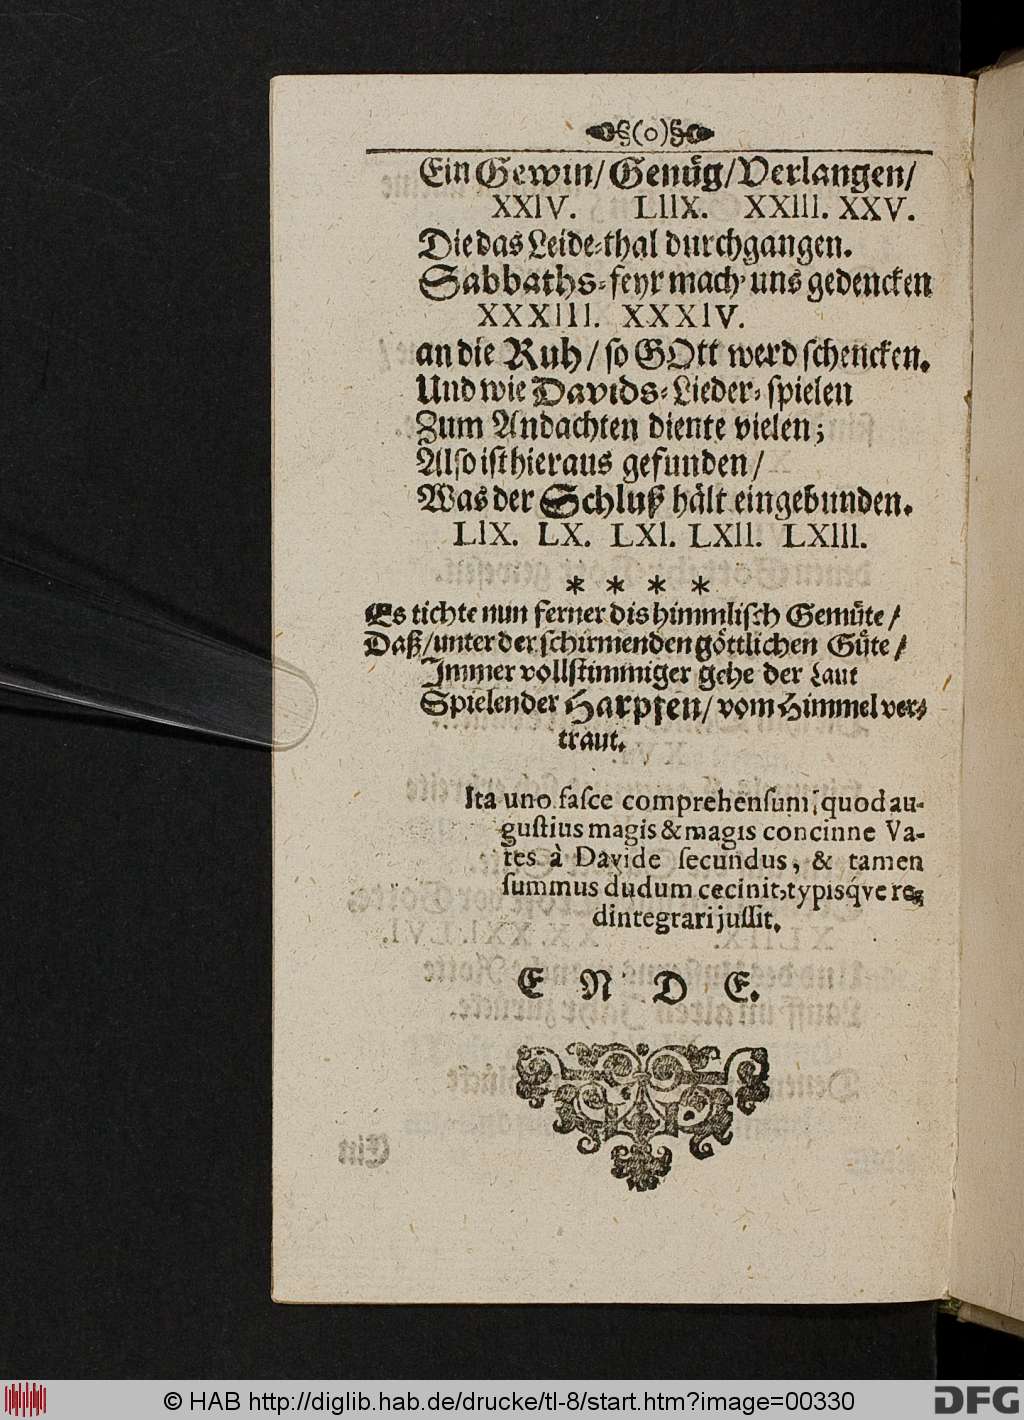 §(o)§
Ein Gewin/ Genüg/ Verlangen/
XXIV. LIIX. XXIII. XXV.
Die das Leide-thal durchgangen.
Sabbaths-feyr mach uns gedencken
XXXIII. XXXIV.
an die Ruh/ so GOtt werd schencken.
Und wie Davids-Lieder-spielen
Zum Andachten diente vielen;
Also ist hieraus gefunden/
Was der Schluß hält eingebunden.
LIX. LX. LXI. LXII. LXIII.
* * * *
Es tichte nun ferner dis himmlisch Gemüte/
Daß/ unter der schirmenden göttlichen Güte/
Immer vollstimmiger gehe der Laut
Spielender Harpfen/ vom Himmel ver-
traut.
Ita uno fasce comprehensum, quod au-
gustius magis & magis concinne Va-
tes à Davide secundus, & tamen
summus dudum cecinit, typisq́ve re-
dintegrari jussit.
E N D E.
© HAB http://diglib.hab.de/drucke/tl-8/start.htm?image=00330
DFG